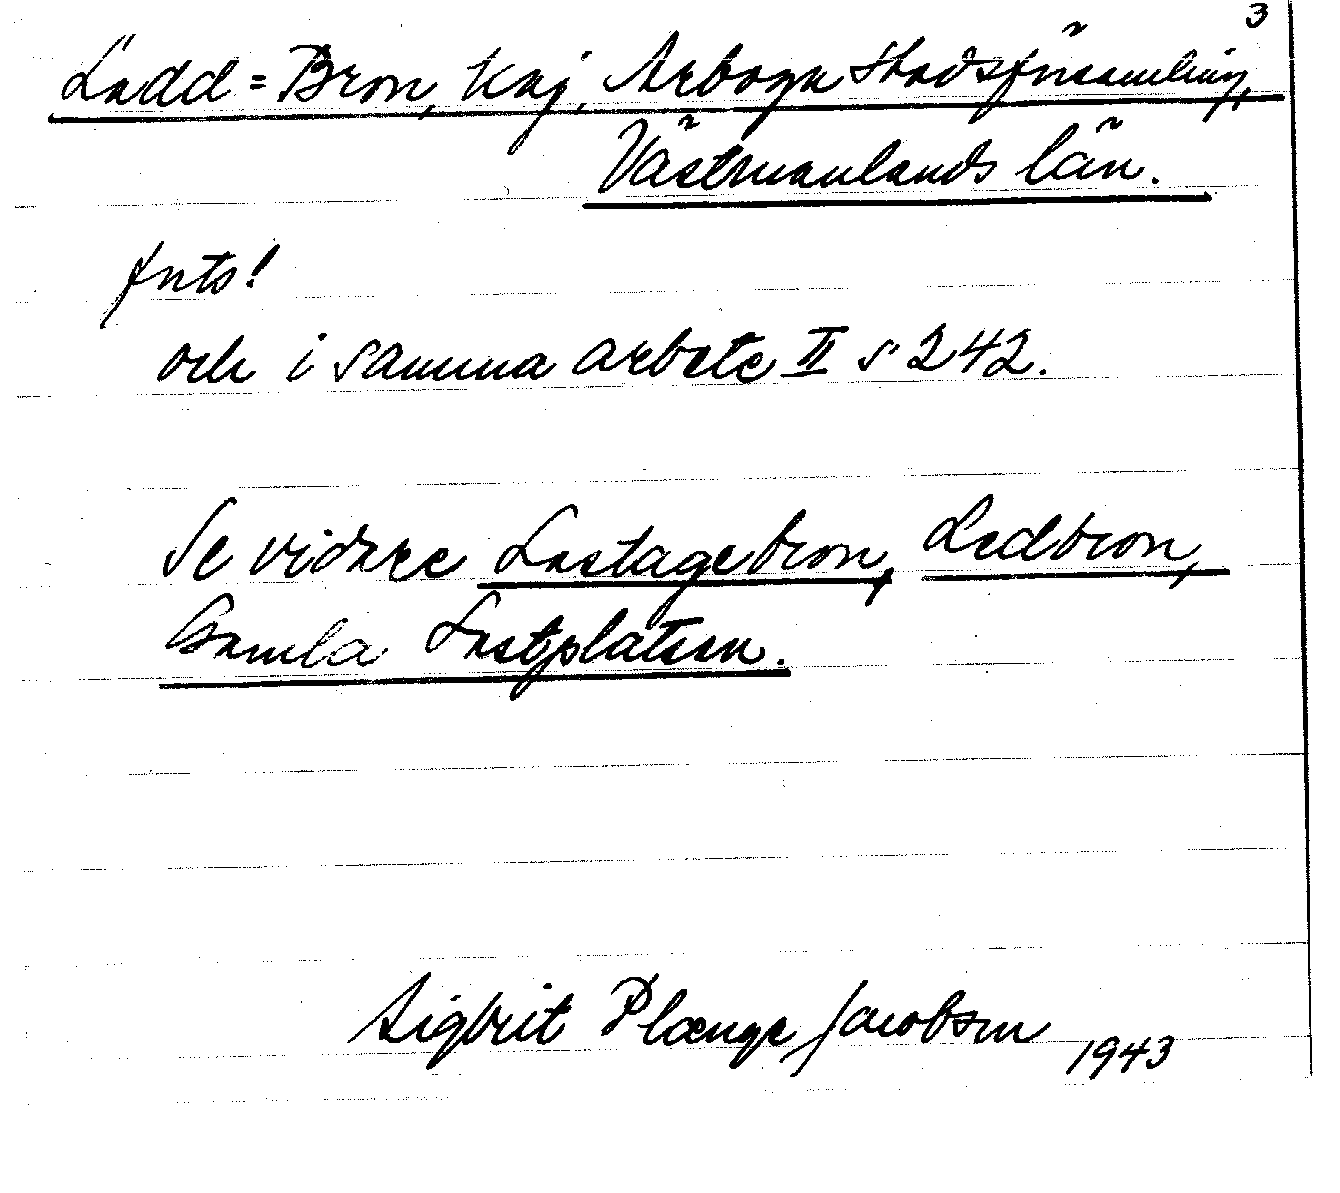 3
Ladd=Bron, Kaj, Arboga Stadsförsamling,
Västmanlands län.
forts!
och i samma arbete II s 242.
Se vidare Lastagebron, Ledbron,
Gamla Lastplatsen.
Sigbrit Plænge Jacobson 1943